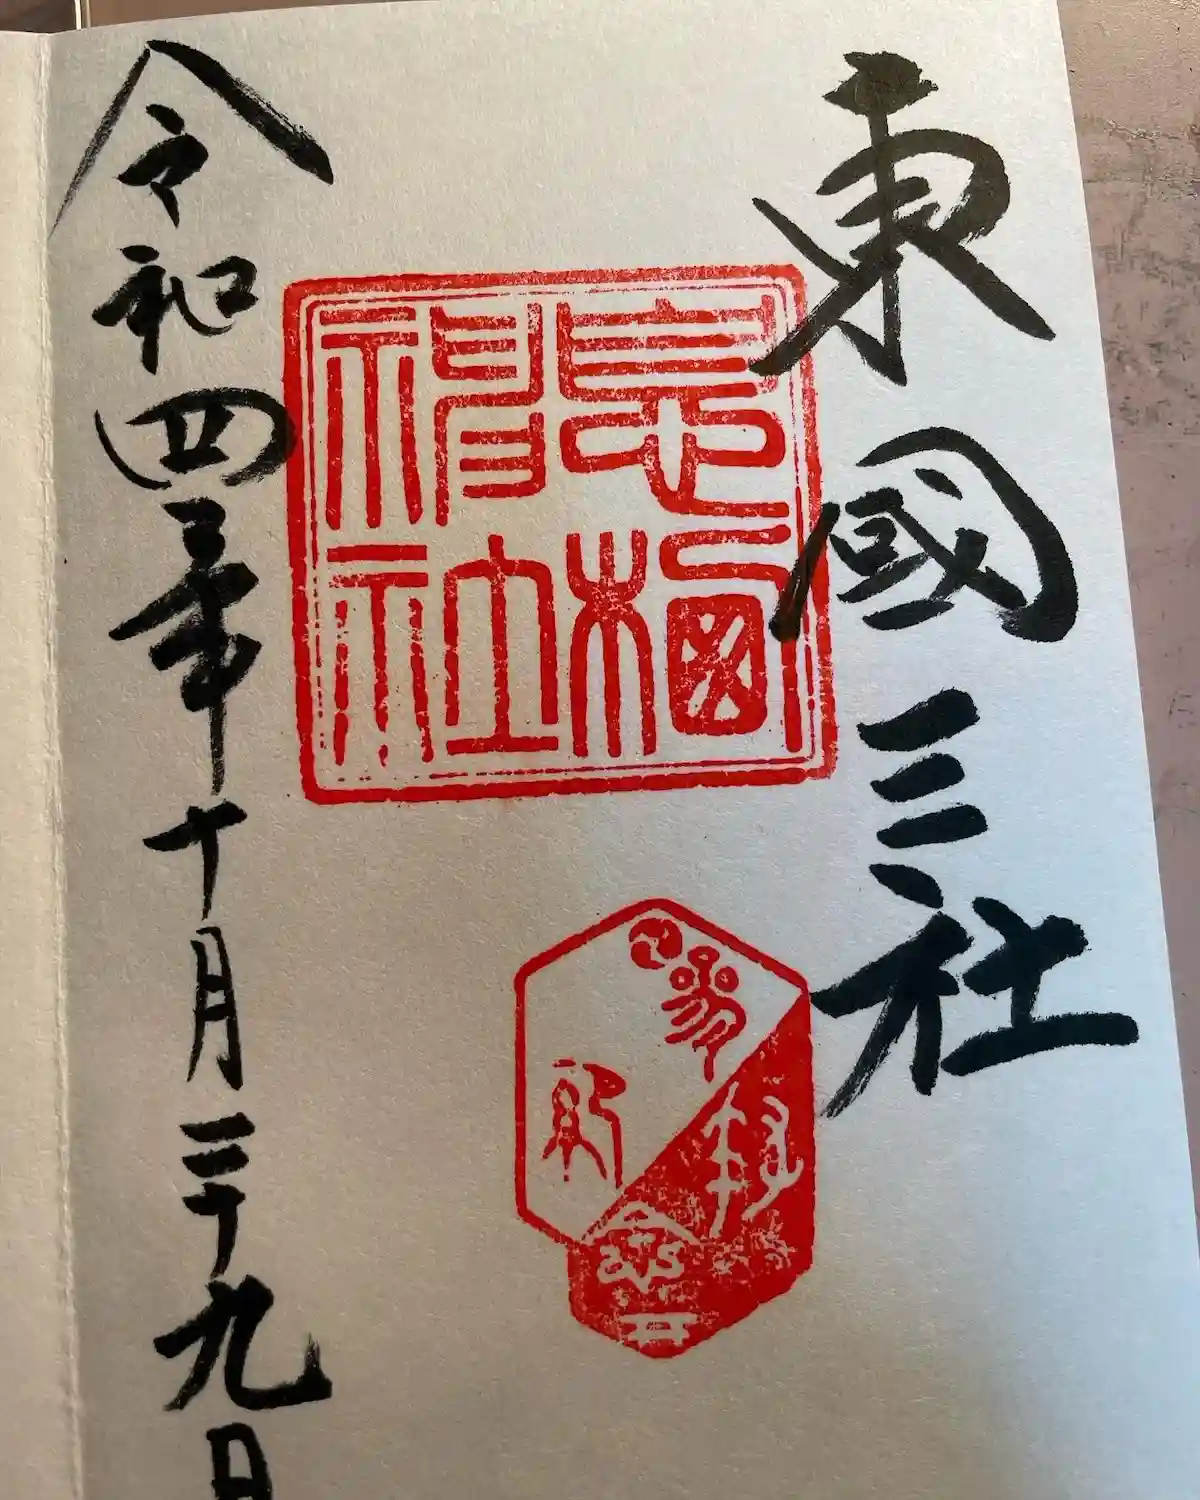 東國三社
息栖
神社
令和四年十月二十九日